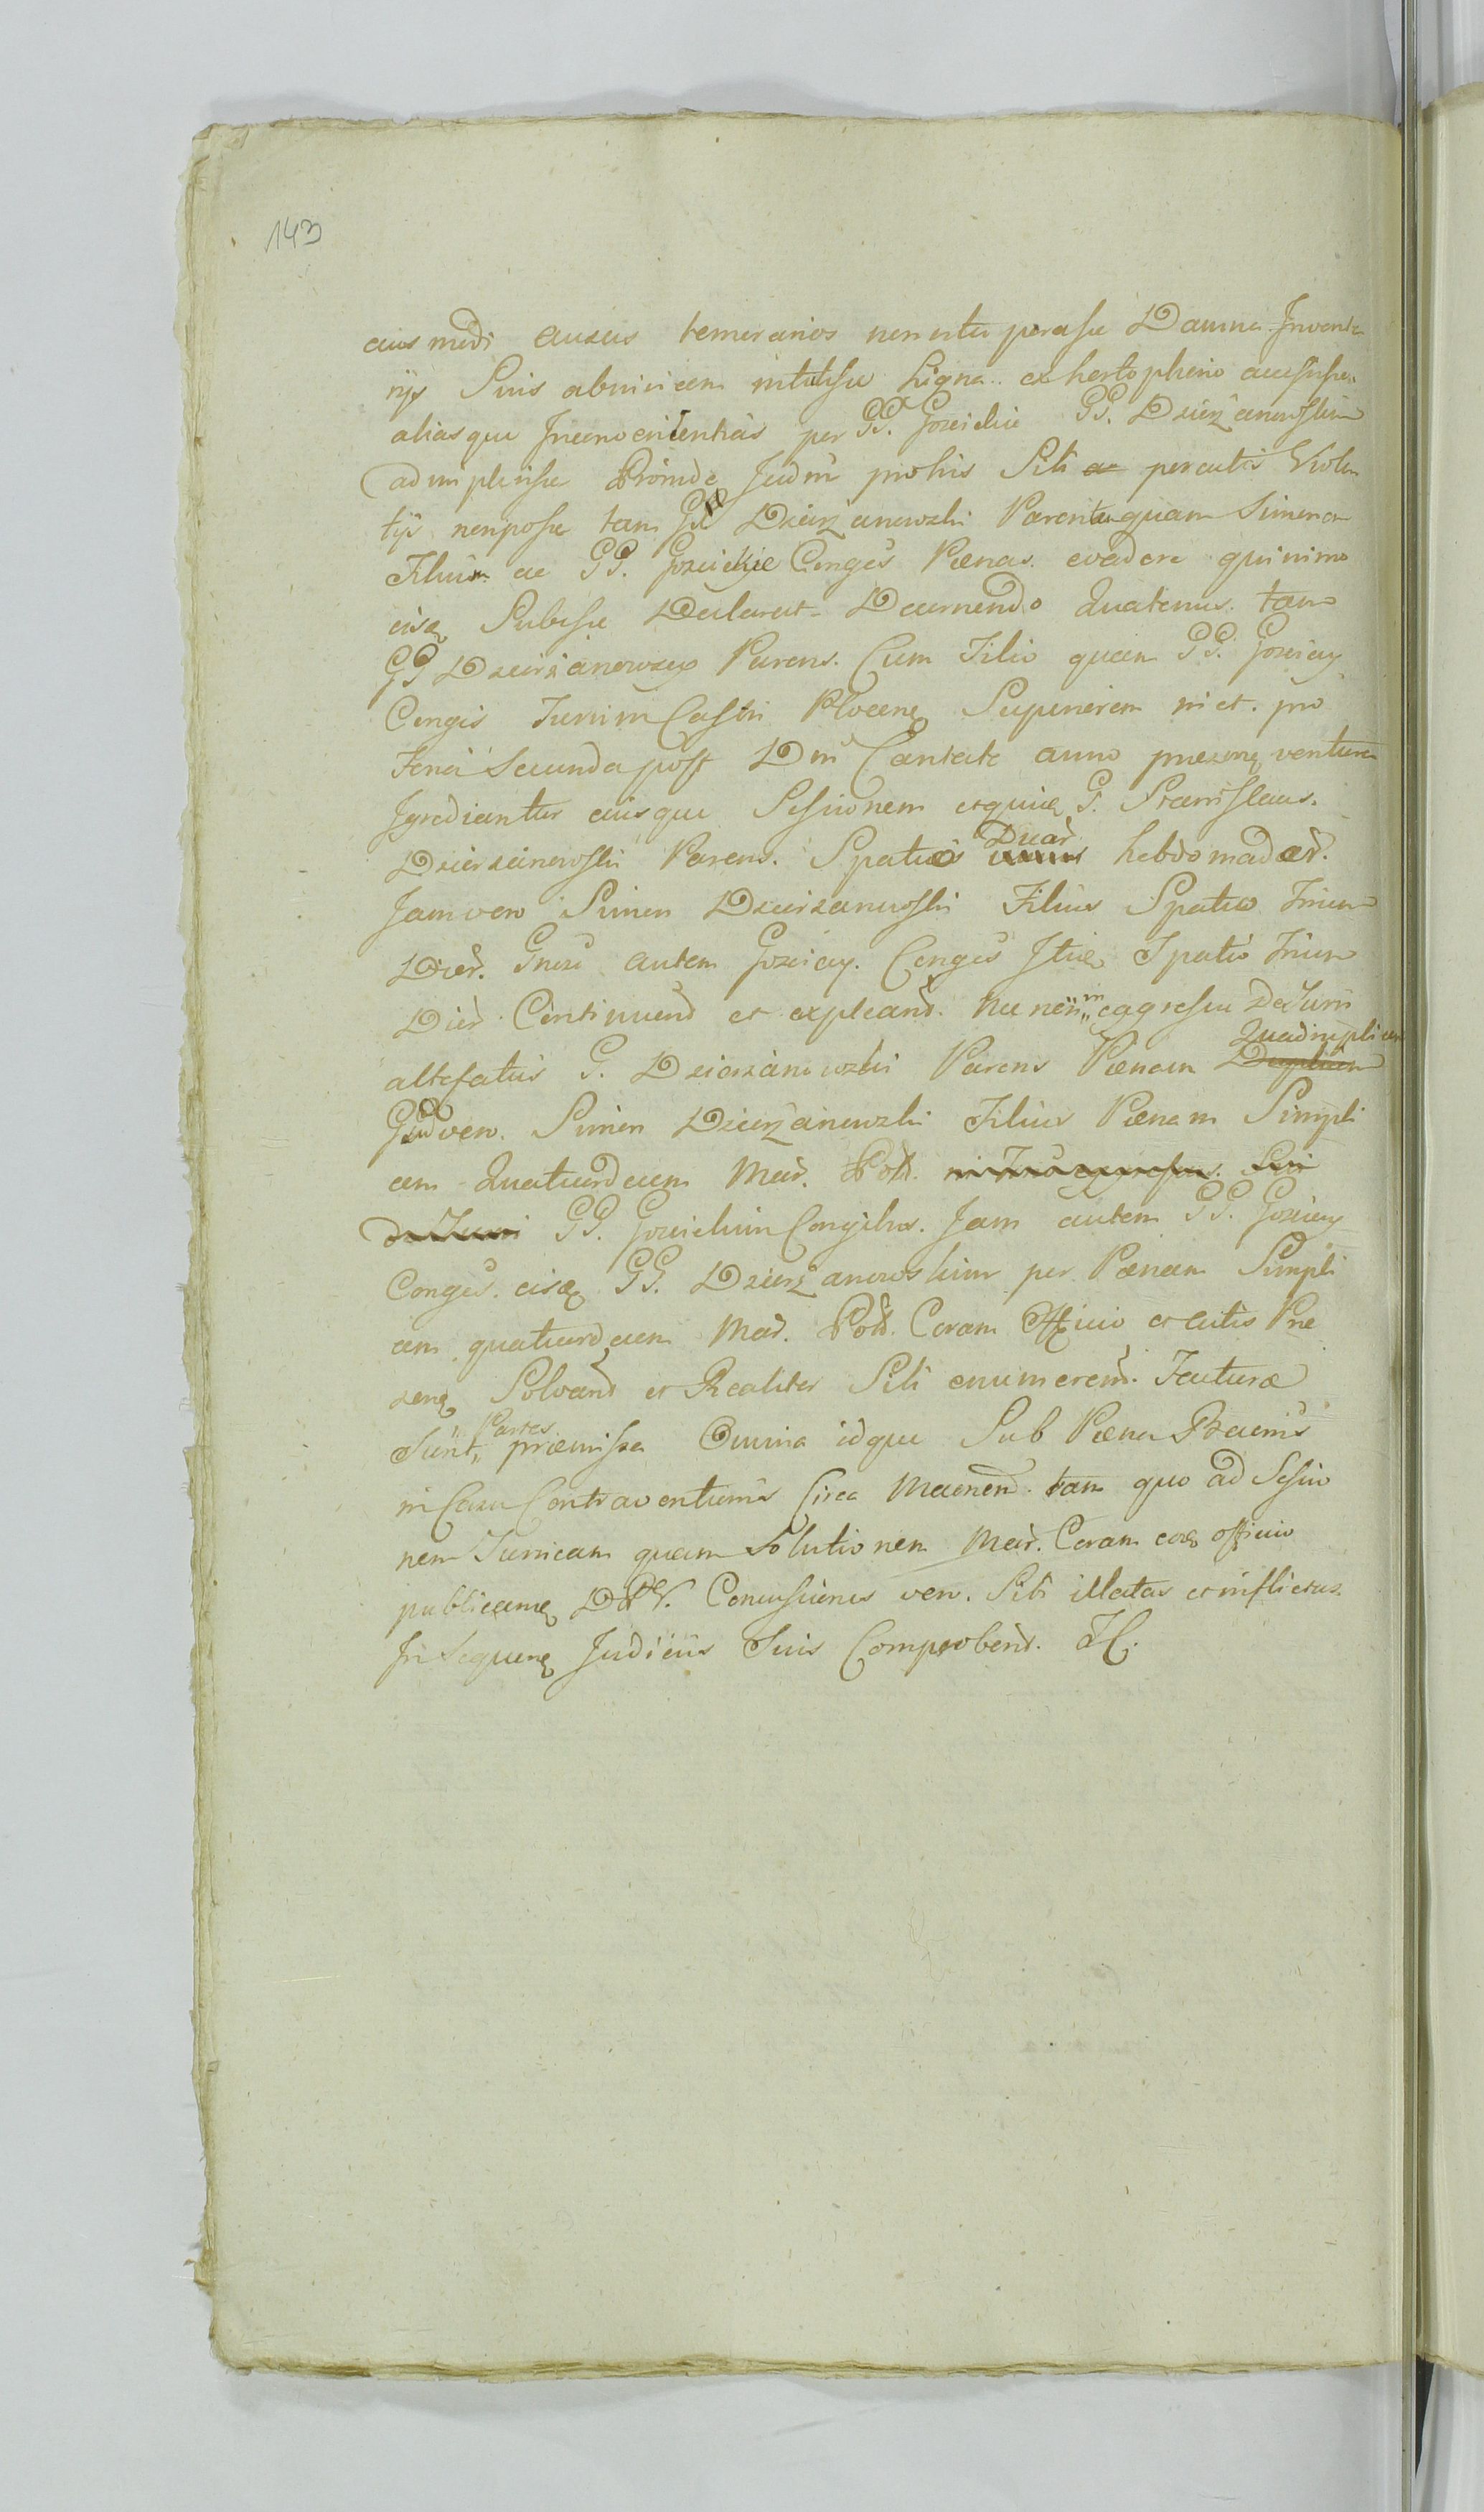 143
eius modi ausus temerarios non extu perasse Damna Inventa
rijs Suis abinvicem intulisse Ligna ex hortopheno accessisse
aliasque Inconvenientias per GG. Gozickie GG. Dzierzanowskim
adimplevisse Proinde Judm pro his Sibi ac percutis Violen
tijs non posse tam Gd Dzierzanowski Parentem quam Simeonem
Filium ac GG. Gozickie Conges Pænas evadere quinimo
eisq Subesse Declarat Decernendo Quatenus tam
GG Dzierżanowscy Parens Cum Filio quam GG. Goziccy
Conges Turrim Castri Plocenq Superiorem in et. pro
Feria Secunda post Dm̄ Cantate anno præsenq ventura
Igrediantur eiusque Sessionem etquiq G. Stanislaus
Dzierzanowski Parens Spatio Duar. hebdomadar.
Jam vero Simon Dzierzanowski Filius Spatio Trium
Dier. Gnosi autem Goziccy Conges Itiq Spatio Trium
Dier Continuend et expleand. Nec non in egressu De Turri
altefatus G. Dzierzanowski Parens Pænam Duplicem Quadruplicem
Gsus vero Simon Dzierzanowski Filius Pænam Simpli
cem Quatuordecim Mar. Pol. in Turri egressu Sui
de Turri GG. Gozickim Congibus. Jam autem GG. Goziccy
Conges eisq GG. Dzierzanowskim per Pænam Simpli
cem quatuordecim Mar. Pol. Coram Officio et Actis Præ
senq Solvand et Realiter Sibi enumerend. Facturæ
Sunt Partes præmissa Omnia idque Sub Pæna Bannis
in Casu Contraventionis Circa Manend. tam quo ad Sessio
nem Turricam quam Solutionem Mar. Coram eoq officio
publicanq DDV. Concussiones vero Sibi illatas et inflictas
In Sequenq Judiciis Suis Comprobend. JC.